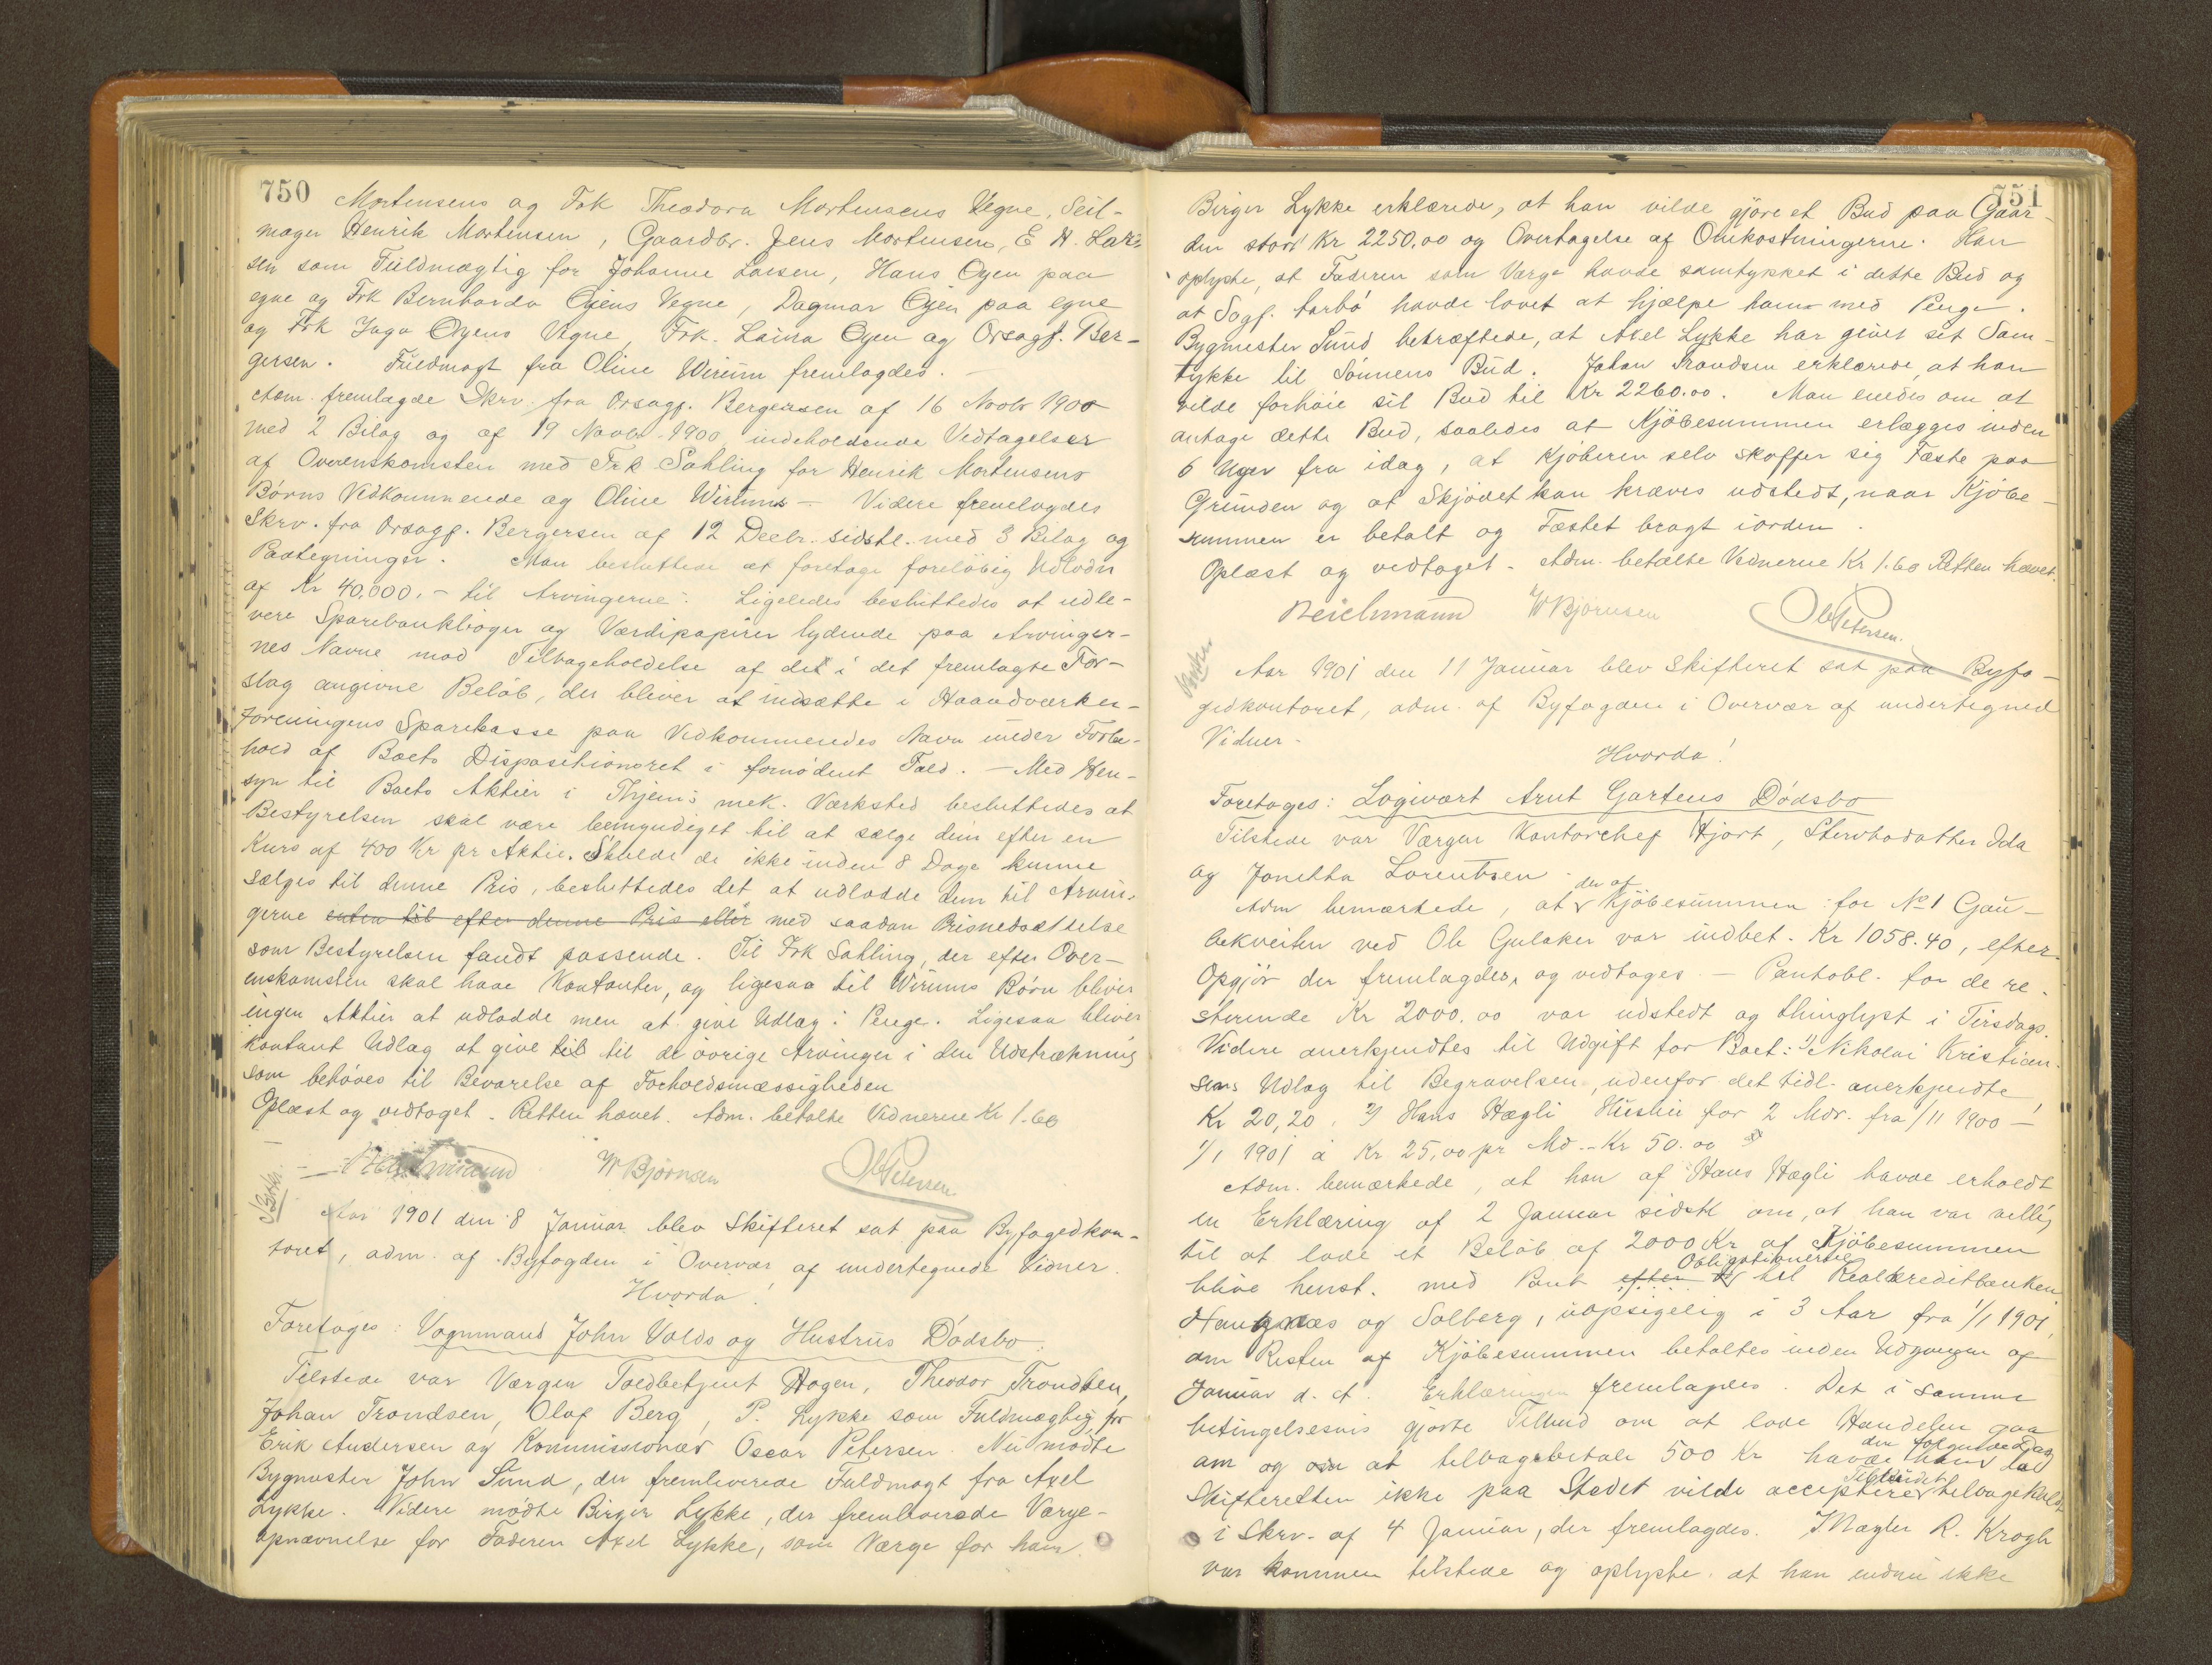 750
Mortensens og Frk Theodora Mortensens Vegne, Seil-
mager Henrik Mortensen, Gaardbr. Jens Mortensen, E H. Lar-
sen som Fuldmægtig for Johanne Larsen, Hans Oyen paa
egne og Frk Bernharda Oyens Vegne, Dagmar Oyen paa egne
og Frk Inga Oyens Vegne, Frk. Laura Oyen og Orsagf. Ber-
gersen. Fuldmagt fra Oline Wirum fremlagdes. –
Adm. fremlagde Skrv. fra Orsagf. Bergersen af 16 Novbr 1900
med 2 Bilag og af 19 Novbr. 1900 indeholdende Vedtagelser
af Overenskomsten med Frk. Sahling for Henrik Mortensens
Børns Vedkommende og Oline Wirums – Videre fremlagdes
Skrv. fra Orsagf. Bergersen af 12 Decbr. sidstl. med 3 Bilag og
Paategninger. Man besluttede at foretage foreløbig Udlodn
af Kr 40,000.- til Arvingerne. Ligeledes besluttedes at udle-
vere Sparebankbøger og Værdipapirer lydende paa Arvinger-
nes Navne mod Tilbageholdelse af det i det fremlagte For-
slag angivne Beløb, der bliver at indsætte i Haandværker-
foreningens Sparekasse paa Vedkommendes Navn under Forbe-
hold af Boets Dispositionsret i fornødent Fald. – Med Hen-
syn til Boets Aktier i Thjems mek. Værksted besluttedes at
Bestyrelsen skal være bemyndiget til at sælge dem efter en
Kurs af 400 Kr pr Aktie. Skulde de ikke inden 8 Dage kunne
sælges til denne Pris, besluttedes det at udlodde dem til Arvin-
gerne enten til efter denne Pris eller med saadan Prisnedsættelse
som Bestyrelsen fandt passende. Til Frk Sahling, der efter Over-
enskomsten skal have Kontanter, og ligesaa til Wirums Børn bliver
ingen Aktier at udlodde men at give Udlæg i Penge. Ligesaa bliver
kontant Udlæg at give til til de øvrige Arvinger i den Udstrækning
som behøves til Bevarelse af Forholdsmæssigheden
Oplæst og vedtaget. Retten hævet. Adm. betalte Vidnerne Kr 1.60
W Bjørnsen O Petersen
Aar 1901 den 8 Januar blev Skifteret sat paa Byfogedkon-
toret, adm. af Byfogden i Overvær af undertegnede Vidner.
Hvorda!
Foretoges: Vognmand John Volds og Hustrus Dødsbo.
Tilstede var Værgen Toldbetjent Hagen, Theodor Trondsen,
Johan Trondsen, Olaf Berg, P. Lykke som Fuldmægtig for
Erik Andersen og Kommissionær Oscar Petersen. Nu mødte
Bygmester John Sund, der fremleverede Fuldmagt fra Axel
Lykke. Videre mødte Birger Lykke, der fremleverede Værge-
opnævnelse for Faderen Axel Lykke, som Værge for ham.
751
Birger Lykke erklærede, at han vilde gjøre et Bud paa Gaar-
den stort Kr 2250,00 og Overtagelse af Omkostningerne. Han
oplyste, at Faderen som Værge havde samtykket i dette Bud og
at Sagf. Aarbø havde lovet at hjælpe ham med Penge.
Bygmester Sund bekræftede, at Axel Lykke har givet sit Sam-
tykke til Sønnens Bud. Johan Trondsen erklærede, at han
vilde forhøie sit Bud til Kr 2260.00. Man enedes om at
antage dette Bud, saaledes at Kjøbesummen erlægges inden
6 Uger fra idag, at Kjøberen selv skaffer sig Fæste paa
Grunden og at Skjødet kan kræves udstedt, naar Kjøbe-
summen er betalt og Fæstet bragt iorden.
Oplæst og vedtaget. Adm. betalte Vidnerne Kr 1.60 Retten hævet.
Reichmann W Bjørnsen O Petersen.
Aar 1901 den 11 Januar blev Skifteret sat paa Byfo-
gedkontoret, adm. af Byfogden i Overvær af undertegned
Vidner.
Hvorda!
Foretoges: Logivært Arnt Gartens Dødsbo
Tilstede var Værgen Kontorchef Hjort, Stervbodatter Ida
og Jonetta Lorentsen.
der af
Adm bemærkede, at Kjøbesummen for No 1 Gau-
bekveiten ved Ole Gulaker var indbet. Kr 1058.40, efter
Opgjør der fremlagdes, og vedtages. – Pantobl. for de re-
sterende Kr 2000.00 var udstedt og thinglyst i Tirsdags.
Videre anerkjendtes til Udgift for Boet: 1/ Nikolai Kristian-
sens Udlæg til Begravelsen, udenfor det tidl. anerkjendte,
Kr 20,20. 2/ Hans Hægli Husleie for 2 Mdr. fra 1/11 1900 –
1/1 1901 á Kr 25,00 pr Md – Kr 50.00
Adm. bemærkede, at han af Hans Hægli havde erholdt
en Erklæring af 2 Januar sidstl om, at han var villig
til at lade et Beløb af 2000 Kr af Kjøbesummen
Obligationer til
blive henst. med Pant efter til Realkreditbanken
Haugnæs og Solberg, uopsigelig i 3 Aar fra 1/1 1901,
om Resten af Kjøbesummen betaltes inden Udgangen af
Januar d. A. Erklæringen fremlagdes. Det i samme
betingelsesvis gjorte Tilbud om at lade Handelen gaa
den følgende Dag
om og om at tilbagebetale 500 Kr havde han da
Tilbudet
Skifteretten ikke paa Stedet vilde acceptere tilbagekaldt
i Skrv. af 4 Januar, der fremlagdes. Mægler R. Krogh
var kommen tilstede og oplyste at han endnu ikke